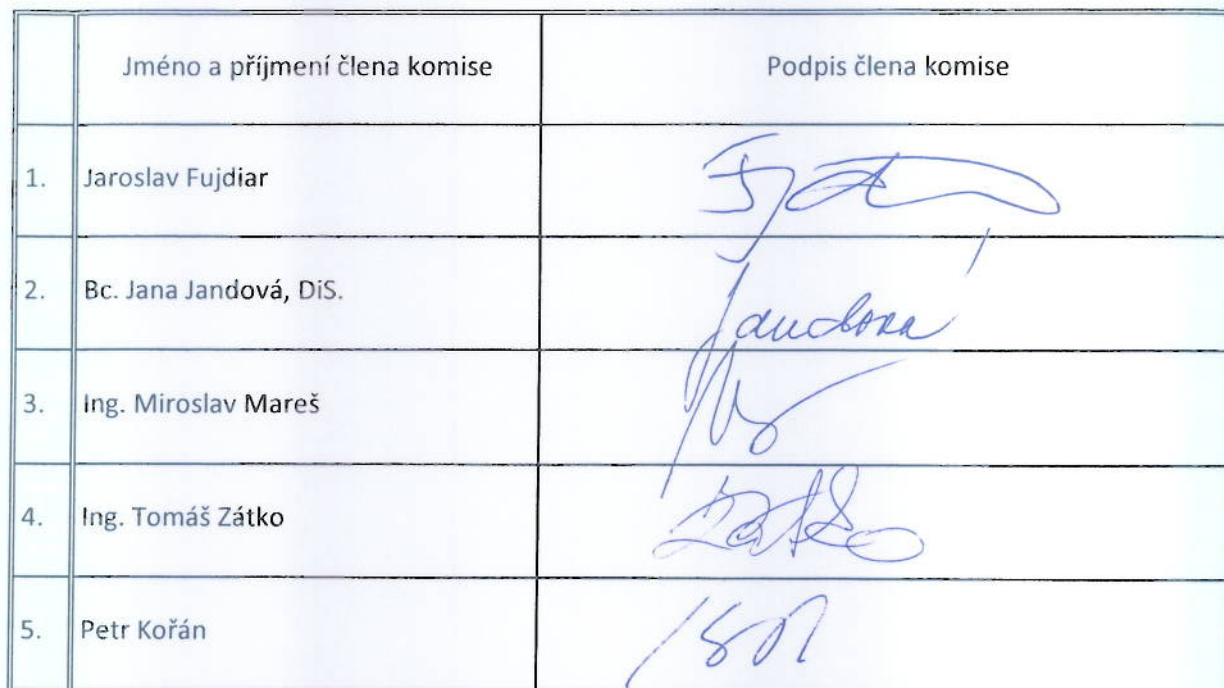 Jméno a příjmení člena komise Podpis člena komise
1. Jaroslav Fujdiar
2. Bc. Jana Jandová, DiS. Jandová
3. Ing. Miroslav Mareš
4. Ing. Tomáš Zátko Zátko
5. Petr Kořán